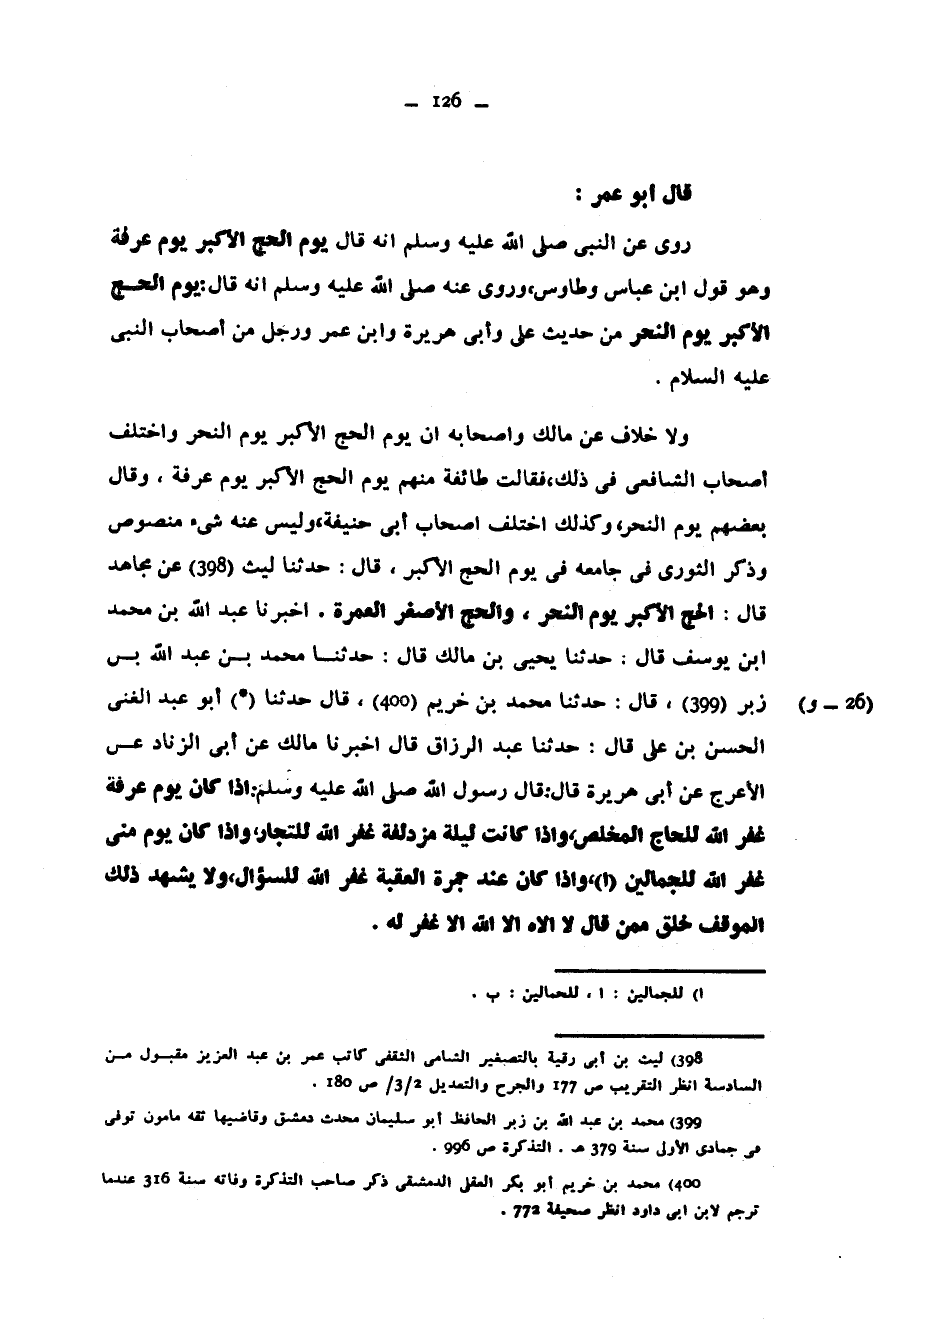 — 126 —
قال ابو عمر :
روى عن النبى صلى الله عليه وسلم انه قال يوم الحج الأكبر يوم عرفة
وهو قول ابن عباس وطاوس،وروى عنه صلى الله عليه وسلم انه قال:يوم الحــج
الأكبر يوم النحر من حديث على وأبى هريرة وابن عمر ورجل من أصحاب النبى
عليه السلام .
ولا خلاف عن مالك واصحابه ان يوم الحج الأكبر يوم النحر واختلف
أصحاب الشافعى فى ذلك،فقالت طائفة منهم يوم الحج الأكبر يوم عرفة ، وقال
بعضهم يوم النحر، وكذلك اختلف اصحاب أبى حنيفة،وليس عنه شىء منصوص
وذكر الثورى فى جامعه فى يوم الحج الأكبر ، قال : حدثنا ليث (398) عن مجاهد
قال : الحج الأكبر يوم النحر ، والحج الأصغر العمرة . اخبرنا عبد الله بن محمد
ابن يوسف قال : حدثنا يحيى بن مالك قال : حدثنــا محمد بــن عبد الله بــن
زبر (399) ، قال : حدثنا محمد بن خريم (400) ، قال حدثنا (*) أبو عبد الغنى
(26 — و)
الحسن بن على قال : حدثنا عبد الرزاق قال اخبرنا مالك عن أبى الزناد عــن
الأعرج عن أبى هريرة قال:قال رسول الله صلى الله عليه وسلم:اذا كان يوم عرفة
غفر الله للحاج المخلص،واذا كانت ليلة مزدلفة غفر الله للتجار،واذا كان يوم منى
غفر الله للجمالين (1)،واذا كان عند جمرة العقبة غفر الله للسؤال،ولا يشهد ذلك
الموقف خلق ممن قال لا الاه الا الله الا غفر له .
1) للجمالين : ا ، للحمالين : ب .
398) ليث بن أبى رقية بالتصغير الشامى الثقفى كاتب عمر بن عبد العزيز مقبــول مــن
السادسة انظر التقريب ص 177 والجرح والتعديل 3/2/ ص 180 .
399) محمد بن عبد الله بن زبر الحافظ أبو سليمان محدث دمشق وقاضيها ثقه مامون توفى
فى جمادى الأولى سنة 379 هـ . التذكرة ص 996 .
400) محمد بن خريم أبو بكر العقلى الدمشقى ذكر صاحب التذكرة وفاته سنة 316 عندما
ترجم لابن ابى داود انظر صحيفة 772 .